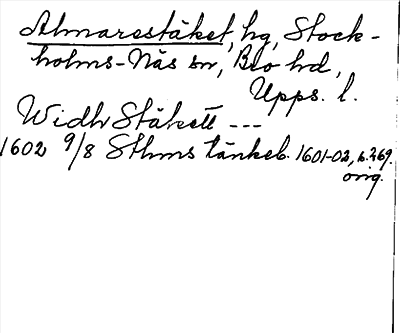 Almarestäket, hg, Stock-
holms-Näs sn, Bro hd,
Upps. l.
Widh Stäkett ---
1602 9/8 Sthms tänkeb. 1601-02, s. 269.
orig.